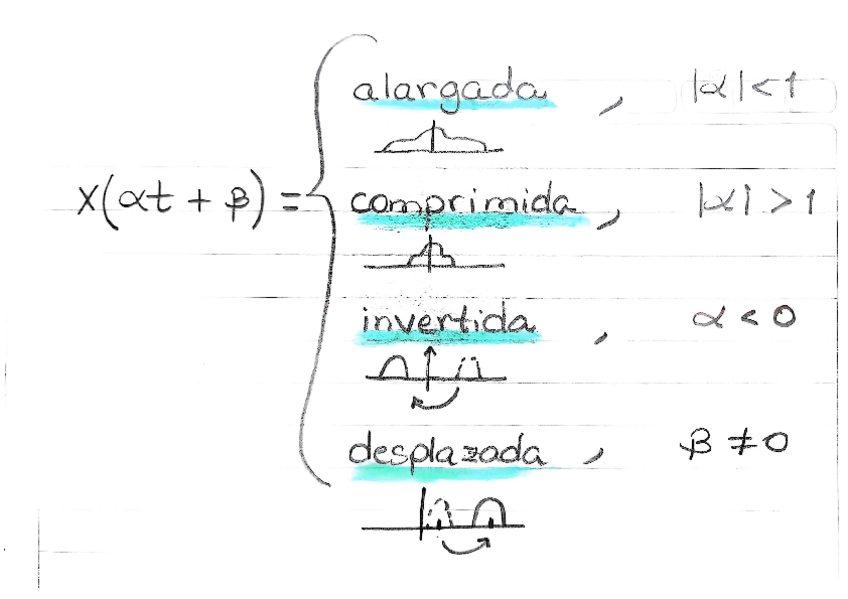 alargada , |α| < 1
x(αt + β) =
comprimida , |α| > 1
invertida , α < 0
desplazada , β ≠ 0